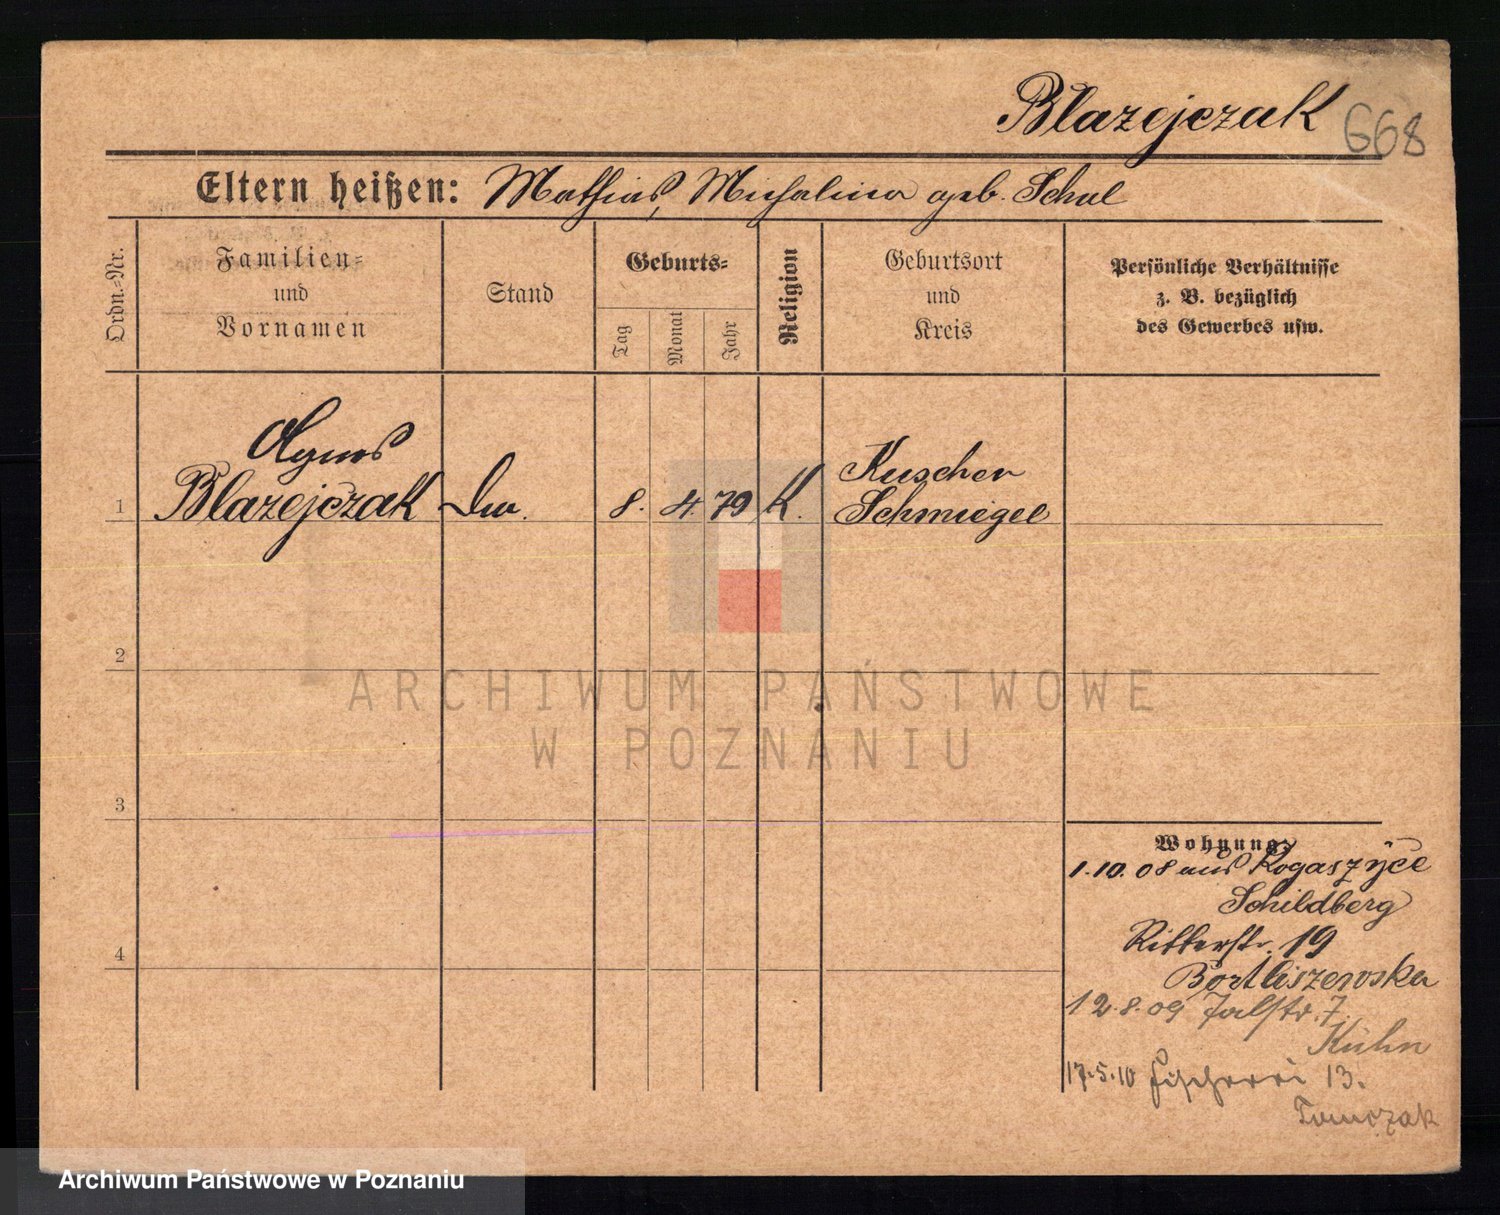 Blazejczak 668
Eltern heißen: Mathias, Michalina geb. Schul
Ordn.-Nr.
Familien-
und
Vornamen
Stand
Geburts-
Tag
Monat
Jahr
Religion
Geburtsort
und
Kreis
Persönliche Verhältnisse
z. B. bezüglich
des Gewerbes usw.
Agnes
Blazejczak
1
8. 4. 79 K.
Kuschen
Schmiegel
2
ARCHIWUM PAŃSTWOWE
W POZNANIU
3
Wohnung:
1.10.08 aus Rogaszyce
Schildberg
Ritterstr. 19
4
Bortliszewska
12.8.09 Talstr. 7.
Kuhn
17.5.10 Fischerei 13.
Tomczak
Archiwum Państwowe w Poznaniu